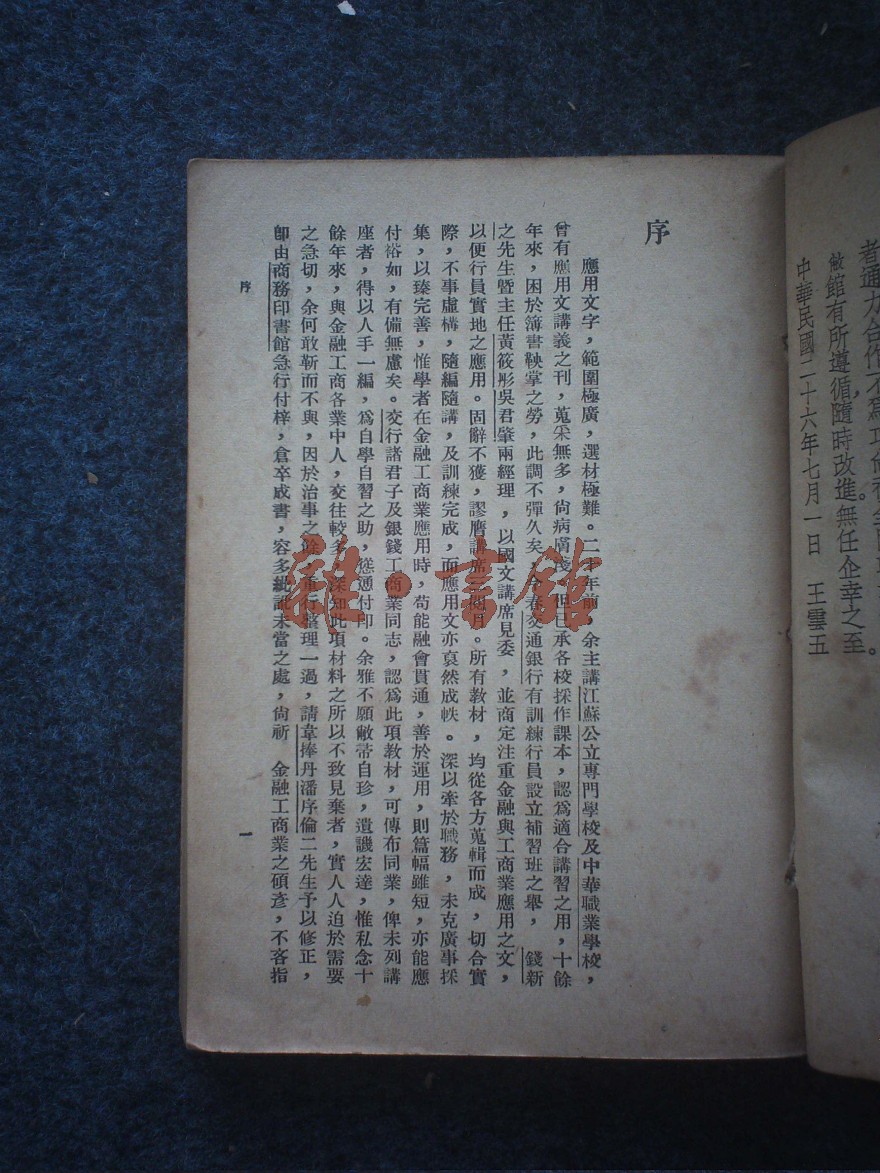 者通力合作不爲功
敝館有所遵循，隨時改進。無任企幸之至。
中華民國二十六年七月一日　王雲五
序
應用文字，範圍極廣，選材極難。二十年前，余主講江蘇公立專門學校及中華職業學校，
曾有應用文講義之刊，蒐采無多，尙病廣茂，但已承各校採作課本，認爲適合講習之用，十餘
年來，困於簿書鞅掌之勞，此調不彈久矣。今春交通銀行有訓練行員設立補習班之舉，　錢新
之先生暨主任黃筱彤吳君肇兩經理，以國文講席見委，並商定注重金融與工商業應用之文，
以便行員實地之應用。固辭不獲，謬膺講席三閱月。所有教材，均從各方蒐輯而成，切合實
際，不事虛構，隨編隨講，及訓練完成，而應用文亦裒然成帙。深以牽於職務，未克廣事採
集，以臻完善，惟學者在金融工商業應用時，苟能融會貫通，善於運用，則篇幅雖短，亦能應
付裕如，有備無慮矣。交行諸君子及銀錢工商業同志，認爲此項教材，可傳布同業，俾未列講
座者，得以人手一編，爲自學自習之助，慫通付印。余雅不願敝帚自珍，遺譏宏達，惟私念十
餘年來，與金融工商各業中人，交往較多，深知此項材料之所以不致見棄者，實人人迫於需要
之急切，余何敢靳而不與，因於治事之餘，重行整理一過，請韋捧丹潘序倫二先生予以修正，
卽由商務印書館急行付梓，倉卒成書，容多紕謬未當之處，尙祈　金融工商業之碩彥，不吝指
序
一
雜·書館